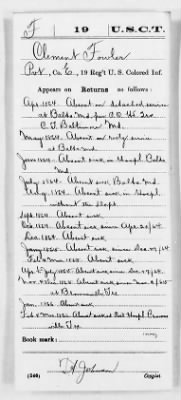 F 19 U.S.C.T.
Clement Fowler
Pvt., Co. E, 19 Reg't U. S. Colored Inf.
Appears on Returns as follows:
Apr. 1864. Absent on detached service
at Balto Md. per S.O. 46
C.S. Baltimore Md.
May 1864. Absent on duty service
at Balto Md.
June 1864. Absent sick in Hospl. Balto
Md.
July 1864. Absent sick Balto. Md.
Aug. 1864. Absent sick in Hospl.
without the Dept.
Sept. 1864. Absent sick.
Oct. 1864. Absent sick since Apr. 20/64
Dec. 1864. Absent sick.
Jany. 1865. Absent sick since Dec. 17/64
Feb & Mar. 1865. Absent sick.
Apl. to July 1865. Absent sick since Dec. 17/64.
Nov & Dec 1865. Absent sick since Nov. 5/65
at Brownsville Tex
Jan. 1866. Absent sick
Feb & Mar. 1866. Absent sick at Post Hospl. Browns
ville Tex.
Book mark:
(546) Copyist.